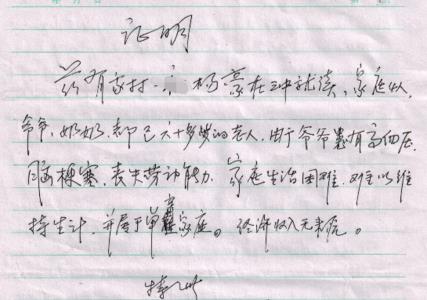 证明
兹有我村 杨豪在三中就读，家庭从
爷爷，奶奶，都已六十多岁的老人，由于爷爷患有高血压
脑梗塞，丧失劳动能力，家庭生活困难，难以维
持生计，并属于单亲家庭。经济收入无来源。
特此